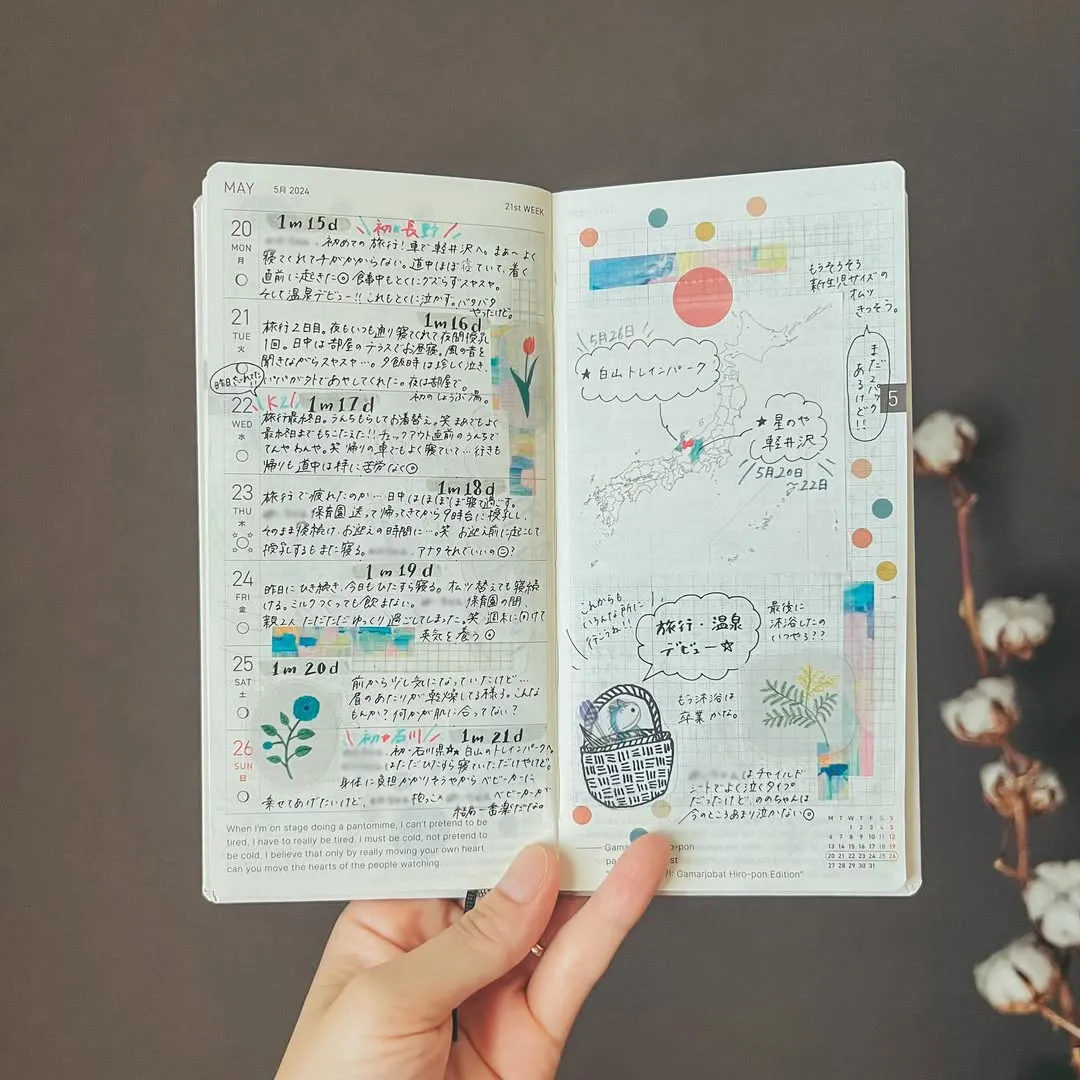 MAY 5月 2024
21st WEEK
20
MON
月
1m 15d
\初★長野/
初めての旅行!車で軽井沢へ。まぁ〜よく
寝てくれて手がかからない。道中ほぼ寝ていて、着く
直前に起きた 食事中もとくにグズらずスヤスヤ。
そして温泉デビュー!!これもとくに泣かず。バタバタ
やったけど。
21
TUE
火
1m 16d
旅行2日目。夜もいつも通り寝てくれて夜間授乳
1回。日中は部屋のテラスでお昼寝。風の音を
聞きながらスヤスヤ…。夕飯時は珍しく泣き、
外であやしてくれた。夜は部屋で。
初のしょうぶ湯。
昨日されてた!!
22
WED
水
1m 17d
旅行最終日。うんちもらしてお着替え。笑 まぁでもよく
最終日までもちこたえた!!チェックアウト直前のうんちで
てんやわんや。笑 帰りの車でもよく寝ていて…行きも
帰りも道中は特に苦労なく
23
THU
木
1m 18d
旅行で疲れたのか…日中はほぼほぼ寝て過ごす。
保育園送って帰ってきてから9時台に授乳し、
そのまま寝続け、お迎えの時間に…。笑 お迎え前に起こして
授乳するもまた寝る。 アナタそれでいいの?
24
FRI
金
1m 19d
昨日にひき続き、今日もひたすら寝る。オムツ替えても寝続
ける。ミルクつくっても飲まない。 保育園の間、
親2人ただただゆっくり過ごしてしまった。笑 週末に向けて
英気を養う
25
SAT
土
1m 20d
前から少し気になっていたけど…
眉のあたりが乾燥してる様子。こんな
もんか?何かが肌に合ってない?
26
SUN
日
\初★石川/
1m 21d
初・石川県☆★白山のトレインパークへ
はただひたすら寝ていただけやけど。
身体に負担かかりそうやからベビーカーに
乗せてあげたいけど、 抱っこ ベビーカーが
結局一番楽だな。
When I'm on stage doing a pantomime, I can't pretend to be
tired, I have to really be tired. I must be cold, not pretend to
be cold. I believe that only by really moving your own heart
can you move the hearts of the people watching.
もうそろそろ
新生児サイズの
オムツ
きつそう。
まだ2パック
あるけど!!
5
5月26日
★白山トレインパーク
★星のや
軽井沢
5月20日
〜22日
これからも
いろんな所に
行こうね!!
旅行・温泉
デビュー☆
最後に
沐浴したの
いつやろ??
もう沐浴は
卒業かな。
はチャイルド
シートでよく泣くタイプ
だったけど、ののちゃんは
今のところあまり泣かない
Hiro-pon
Gamarjobat Hiro-pon Edition"
M T W T F S S
1 2 3 4 5
6 7 8 9 10 11 12
13 14 15 16 17 18 19
20 21 22 23 24 25 26
27 28 29 30 31